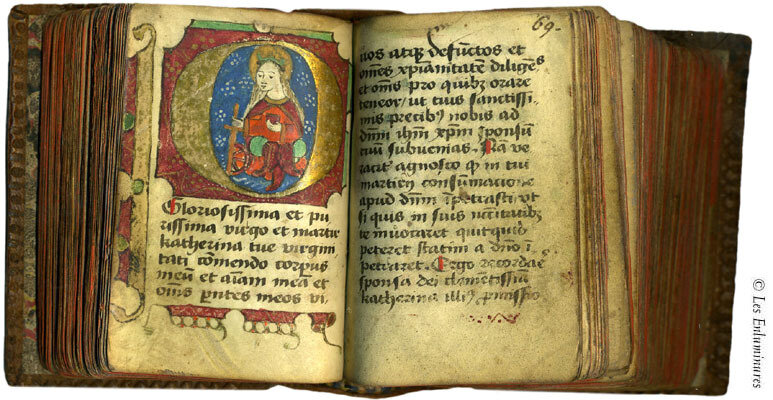 Gloriosissima et pu
rissima virgo et martir
katherina tue virgini
tati comendo corpus
meu et aiam mea et
oms pntes meos vi
69.
uos atq defuctos et
omes xpianitatem diliges
et oms pro quibz orare
teneor / ut tuis sanctissi
mis precibz nobis ad
dnm ihm xpm sponsu
tuu subuenias. Na ve
racit agnosco q in tui
martirii consumacione
apud dnm ipetrasti ut
si quis in suis necitatibz
te inuocaret quitquid
peteret statim a dno i
petraret. Ergo recordae
sponsa dei clementissia
katherina illiz pmissio
© Les Enluminures